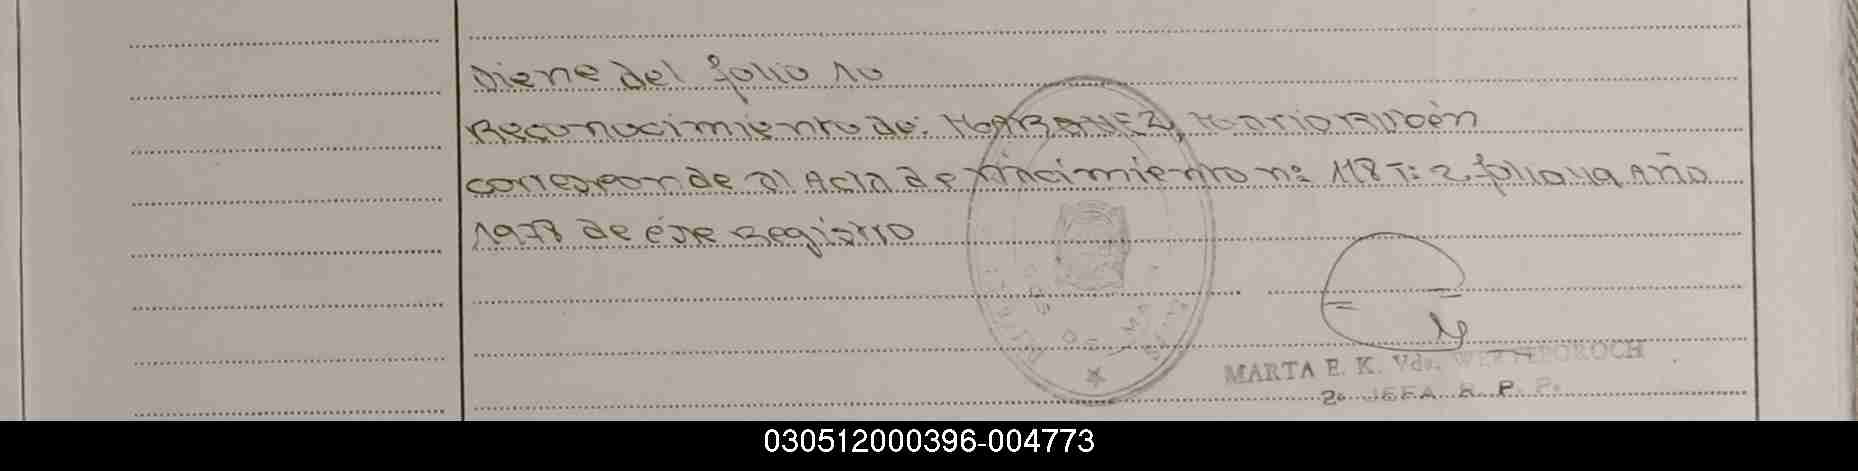 Viene del folio 10
Reconocimiento de: MARQUEZ, Mario Rubén
corresponde al Acta de nacimiento nº 118 T: 2 folio 119 Año
1978 de ése Registro
MARTA E. K. Vda.
2º JEFA R. P. P.
030512000396-004773